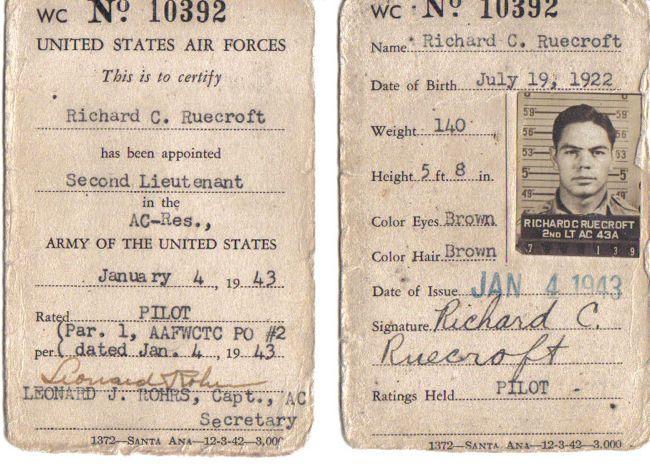 WC Nº 10392
UNITED STATES AIR FORCES
This is to certify
Richard C. Ruecroft
has been appointed
Second Lieutenant
in the
AC-Res.,
ARMY OF THE UNITED STATES
January 4, 1943
Rated PILOT
(Par. 1, AAFWCTC PO #2
per ( dated Jan. 4, 1943.
Leonard J. Rohrs
LEONARD J. ROHRS, Capt., AC
Secretary
1372—SANTA ANA—12-3-42—3,000
WC Nº 10392
Name Richard C. Ruecroft
Date of Birth July 19, 1922
Weight 140
Height 5 ft. 8 in.
Color Eyes Brown
Color Hair Brown
59 59
56
53 53
5 5
49 49
RICHARD C RUECROFT
2ND LT AC 43A
7 1 3 9
Date of Issue JAN 4 1943
Signature Richard C.
Ruecroft
Ratings Held PILOT
1372—SANTA ANA—12-3-42—3,000